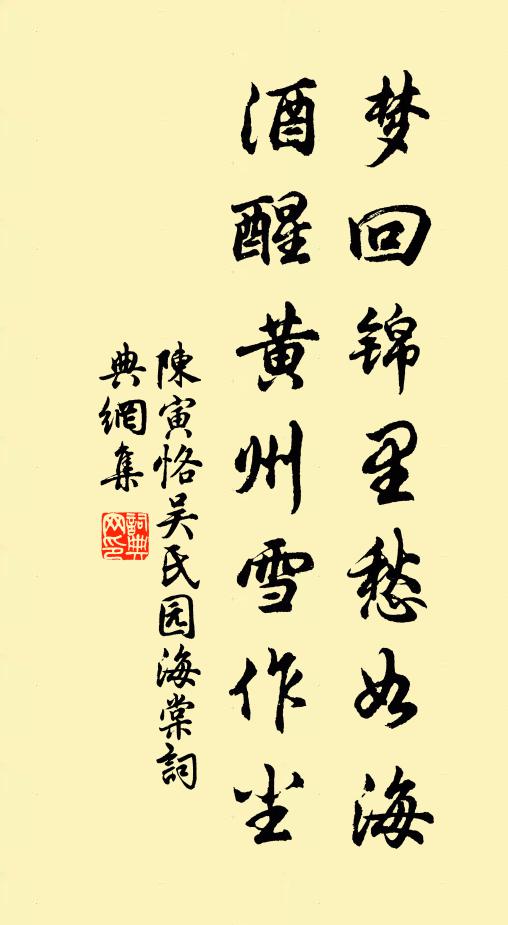 梦回锦里愁如海
酒醒黄州雪作尘
陳寅恪吴氏园海棠詞
典網集
詞典网印